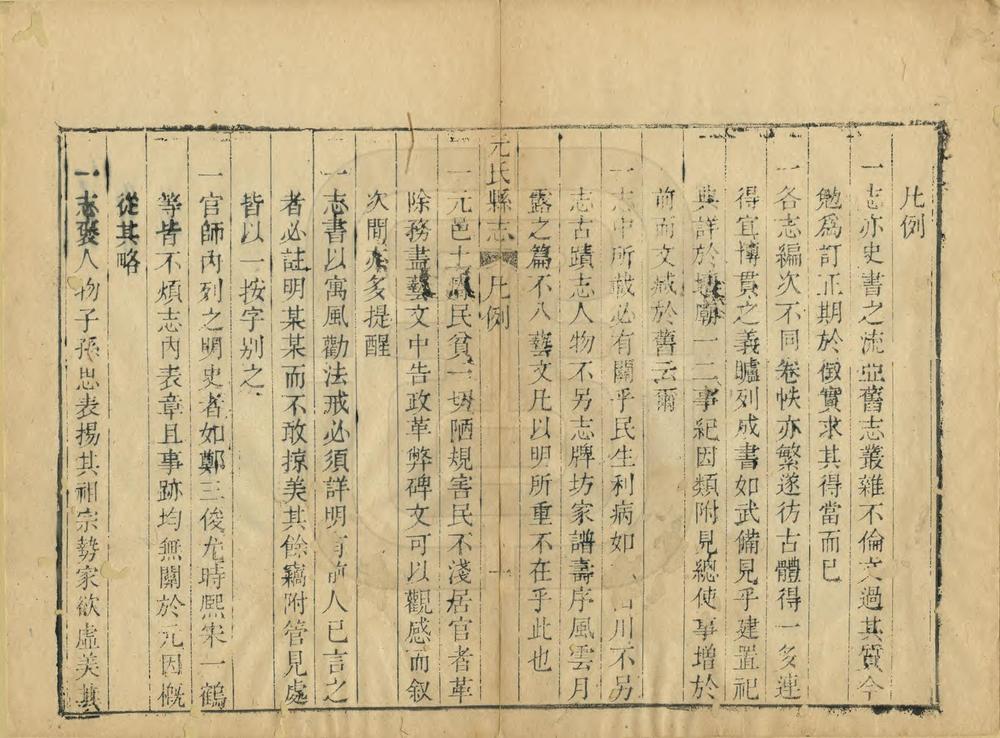 凡例
一志亦史書之流亞舊志叢雜不倫文過其質今
勉爲訂正期於徵實求其得當而已
一各志編次不同卷帙亦繁遂彷古體得一多連
得宜博貫之義臚列成書如武備見乎建置祀
典詳於壇廟一二事紀因類附見總使事增於
前而文減於舊云爾
一志中所載必有關乎民生利病如 山川不另
志古蹟志人物不另志牌坊家譜壽序風雲月
露之篇不入藝文凡以明所重不在乎此也
元氏縣志 凡例 一
一元邑土 民貧一切陋規害民不淺居官者革
除務盡藝文中告政革弊碑文可以觀感而叙
次間亦多提醒
一志書以寓風勸法戒必須詳明 前人已言之
者必註明某某而不敢掠美其餘竊附管見處
皆以一按字別之
一官師內列之明史者如鄭三俊尤時熙宋一鶴
等皆不煩志內表章且事跡均無關於元因概
從其略
一志褒人物子孫思表揚其祖宗勢家欲虛美其